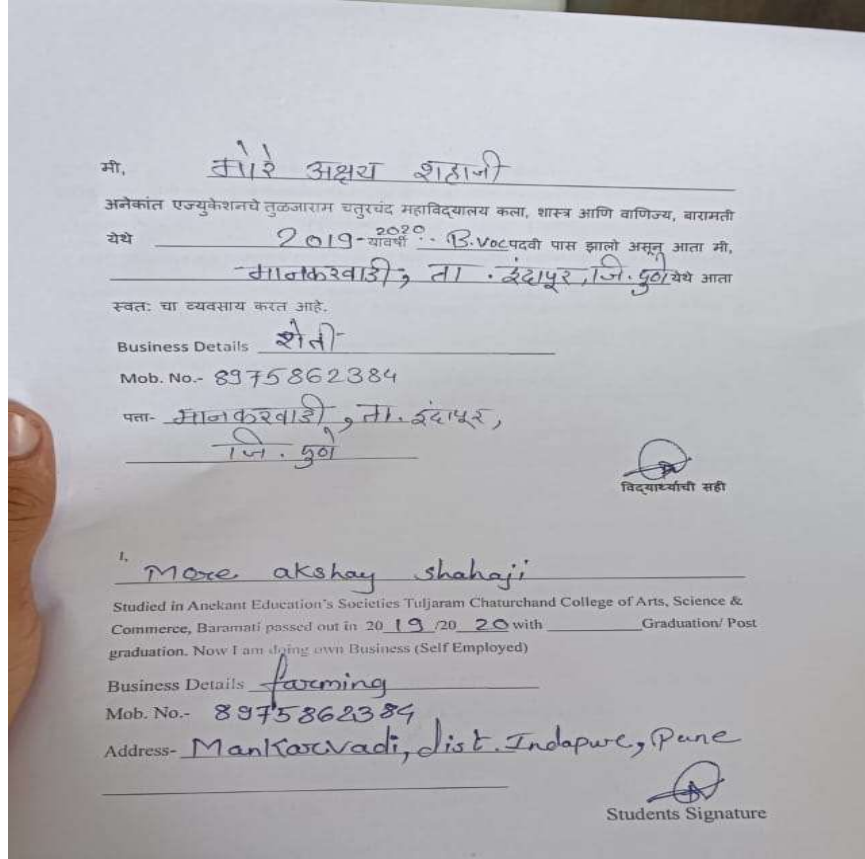 मी, मोरे अक्षय शहाजी
अनेकांत एज्युकेशनचे तुळजाराम चतुरचंद महाविद्यालय कला, शास्त्र आणि वाणिज्य, बारामती
येथे 2019-2020 यावर्षी B.Voc पदवी पास झालो असून आता मी,
मानकरवाडी, ता. इंदापूर, जि. पुणे येथे आता
स्वतः चा व्यवसाय करत आहे.
Business Details शेती
Mob. No.- 8975862384
पत्ता- मानकरवाडी, ता. इंदापूर,
जि. पुणे
विद्यार्थ्याची सही
I, More akshay shahaji
Studied in Anekant Education's Societies Tuljaram Chaturchand College of Arts, Science &
Commerce, Baramati passed out in 2019/2020 with Graduation/ Post
graduation. Now I am doing own Business (Self Employed)
Business Details farming
Mob. No.- 8975862384
Address- Mankarvadi, dist. Indapure, Pune
Students Signature